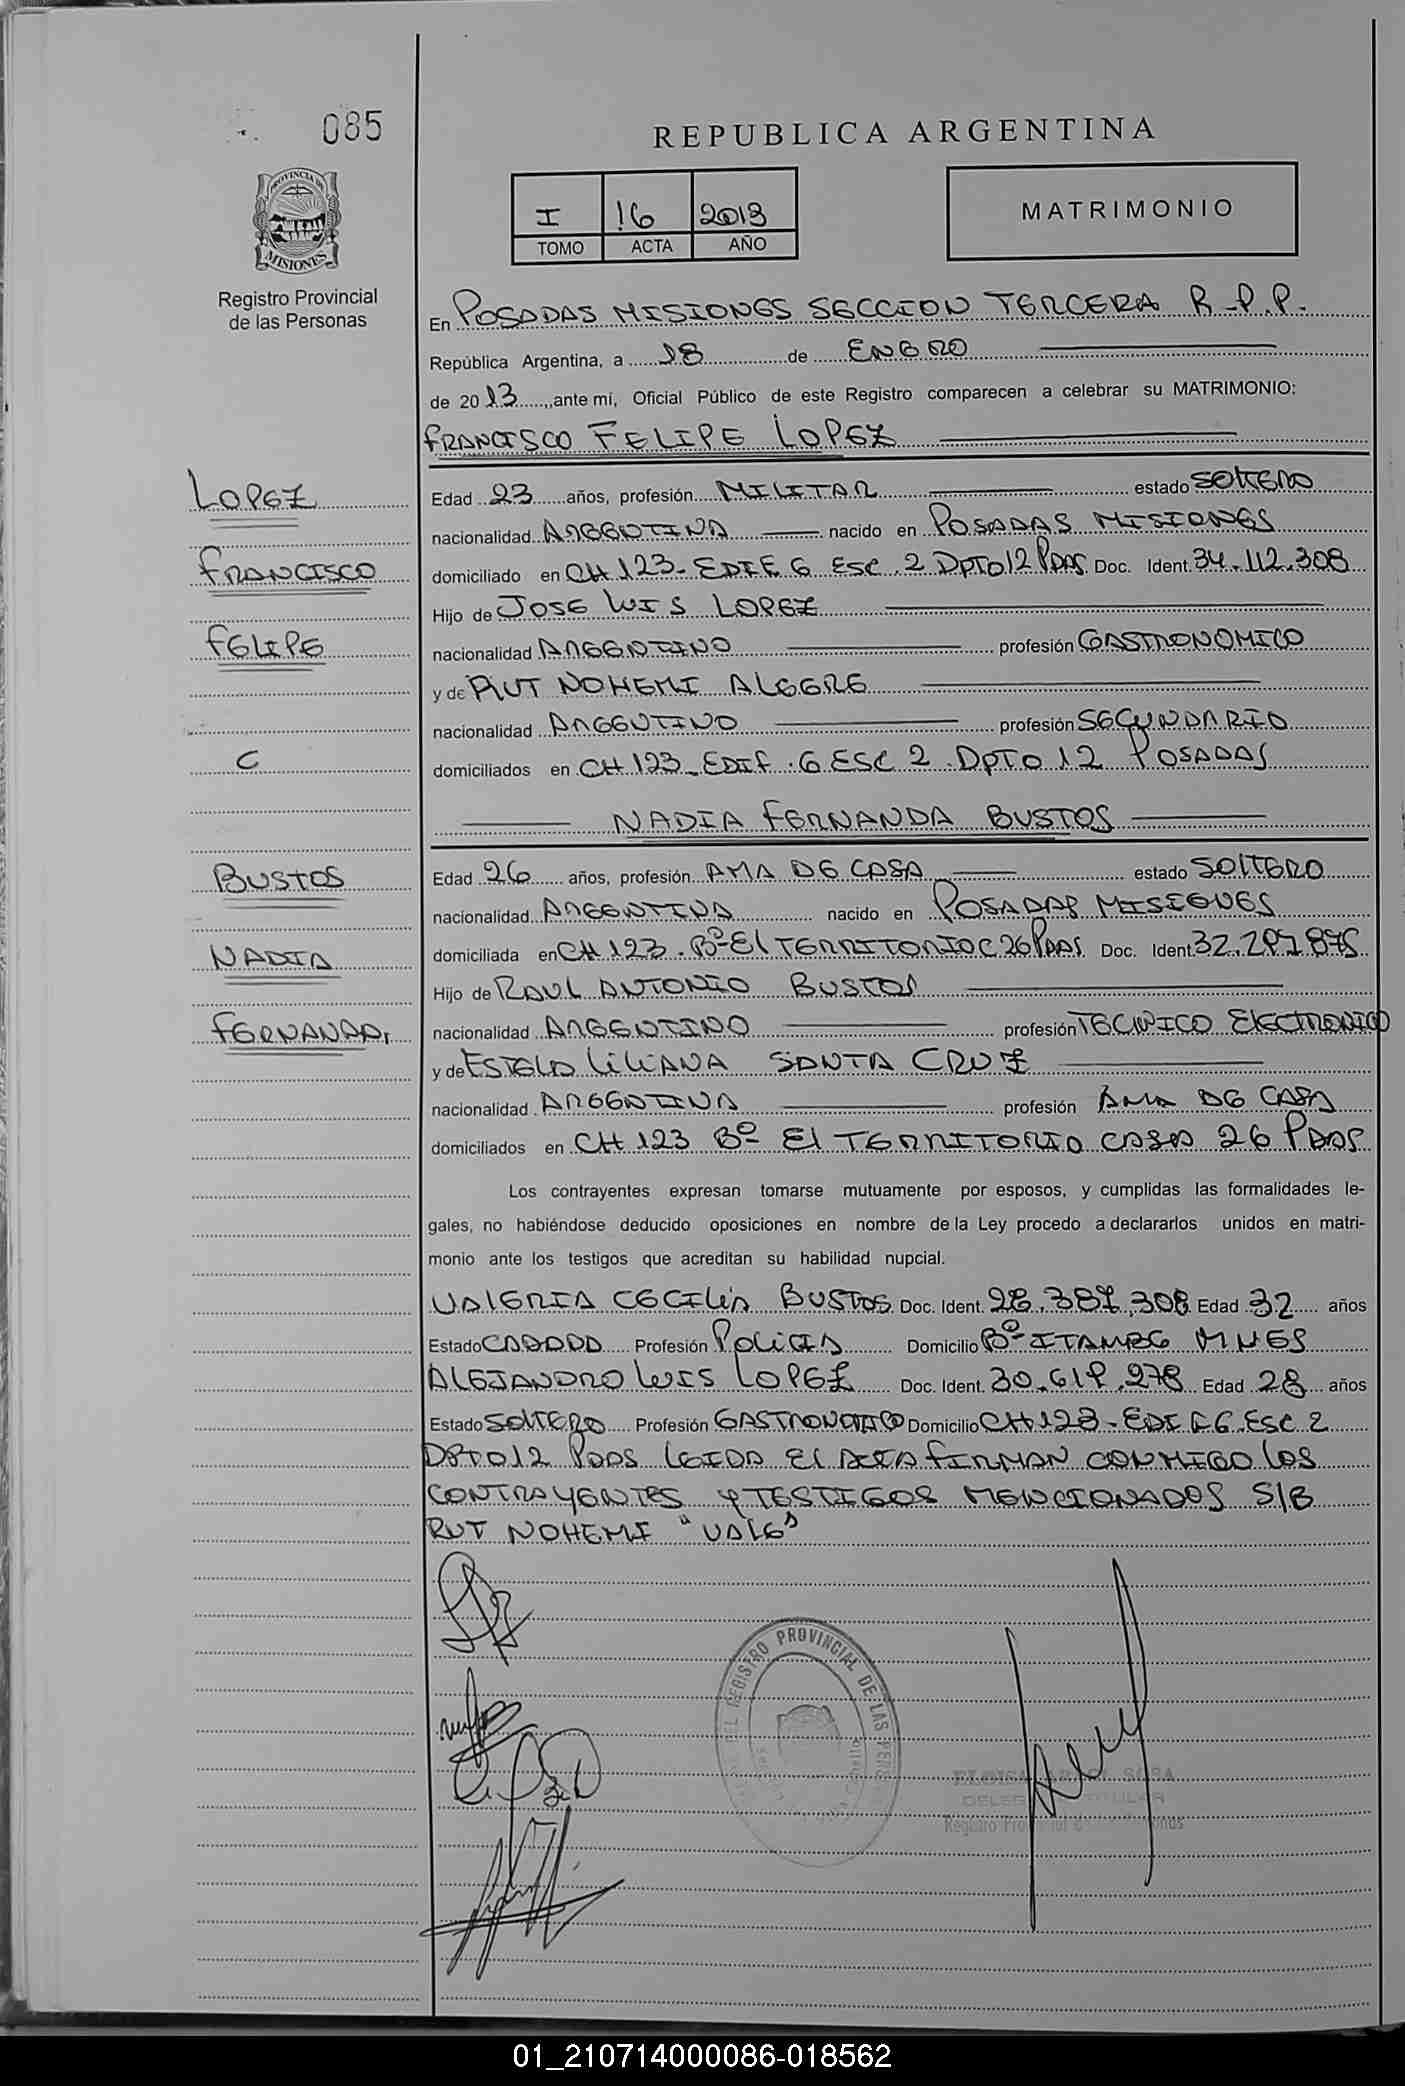 085
REPUBLICA ARGENTINA
PROVINCIA DE
MISIONES
I 16 2013
TOMO ACTA AÑO
MATRIMONIO
Registro Provincial
de las Personas
En POSADAS MISIONES SECCION TERCERA R.P.P.
República Argentina, a 18 de ENERO
de 2013, ante mi, Oficial Público de este Registro comparecen a celebrar su MATRIMONIO:
FRANCISCO FELIPE LOPEZ
LOPEZ
FRANCISCO
FELIPE
C
Edad 23 años, profesión MILITAR estado SOLTERO
nacionalidad ARGENTINA nacido en POSADAS MISIONES
domiciliado en CH 123- EDIF 6 ESC 2 DPTO 12 PDAS. Doc. Ident. 34.112.308
Hijo de JOSE LUIS LOPEZ
nacionalidad ARGENTINO profesión GASTRONOMICO
y de RUT NOHEMI ALEGRE
nacionalidad ARGENTINO profesión SECUNDARIO
domiciliados en CH 123- EDIF. 6 ESC 2 DPTO 12 POSADAS
NADIA FERNANDA BUSTOS
BUSTOS
NADIA
FERNANDA
Edad 26 años, profesión AMA DE CASA estado SOLTERO
nacionalidad ARGENTINA nacido en POSADAS MISIONES
domiciliada en CH 123. Bº El TERRITORIO C 26 PDAS. Doc. Ident. 32.297.875
Hijo de RAUL ANTONIO BUSTOS
nacionalidad ARGENTINO profesión TECNICO ELECTRONICO
y de ESTELA LILIANA SANTA CRUZ
nacionalidad ARGENTINA profesión AMA DE CASA
domiciliados en CH 123 Bº El TERRITORIO CASA 26 PDAS
Los contrayentes expresan tomarse mutuamente por esposos, y cumplidas las formalidades le-
gales, no habiéndose deducido oposiciones en nombre de la Ley procedo a declararlos unidos en matri-
monio ante los testigos que acreditan su habilidad nupcial.
VALERIA CECILIA BUSTOS Doc. Ident. 28.387.308 Edad 32 años
Estado CASADA Profesión POLICIA Domicilio Bº ITAMBE MNES
ALEJANDRO LUIS LOPEZ Doc. Ident. Edad 28 años
Estado SOLTERO Profesión GASTRONOMICO Domicilio CH 123- EDIF 6. ESC. 2
DPTO 12 PDAS LEIDA El ACTA FIRMAN CONMIGO LOS
CONTRAYENTES y TESTIGOS MENCIONADOS S/B
RUT NOHEMI "VALE"
REGISTRO PROVINCIAL DE LAS
SOSA
01_210714000086-018562